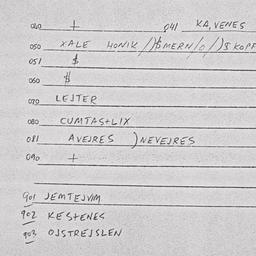 040 + 041 KA, VENES
050 XALE HONIK /)$MERN/O/)$ KOPF
051 $
060 $
070 LEJTER
080 CUMTAS+LIX
081 AVEJRES )NEVEJRES
090 +
901 JEMTEJVIM
902 KESTENES
903 OJSTREJSLEN